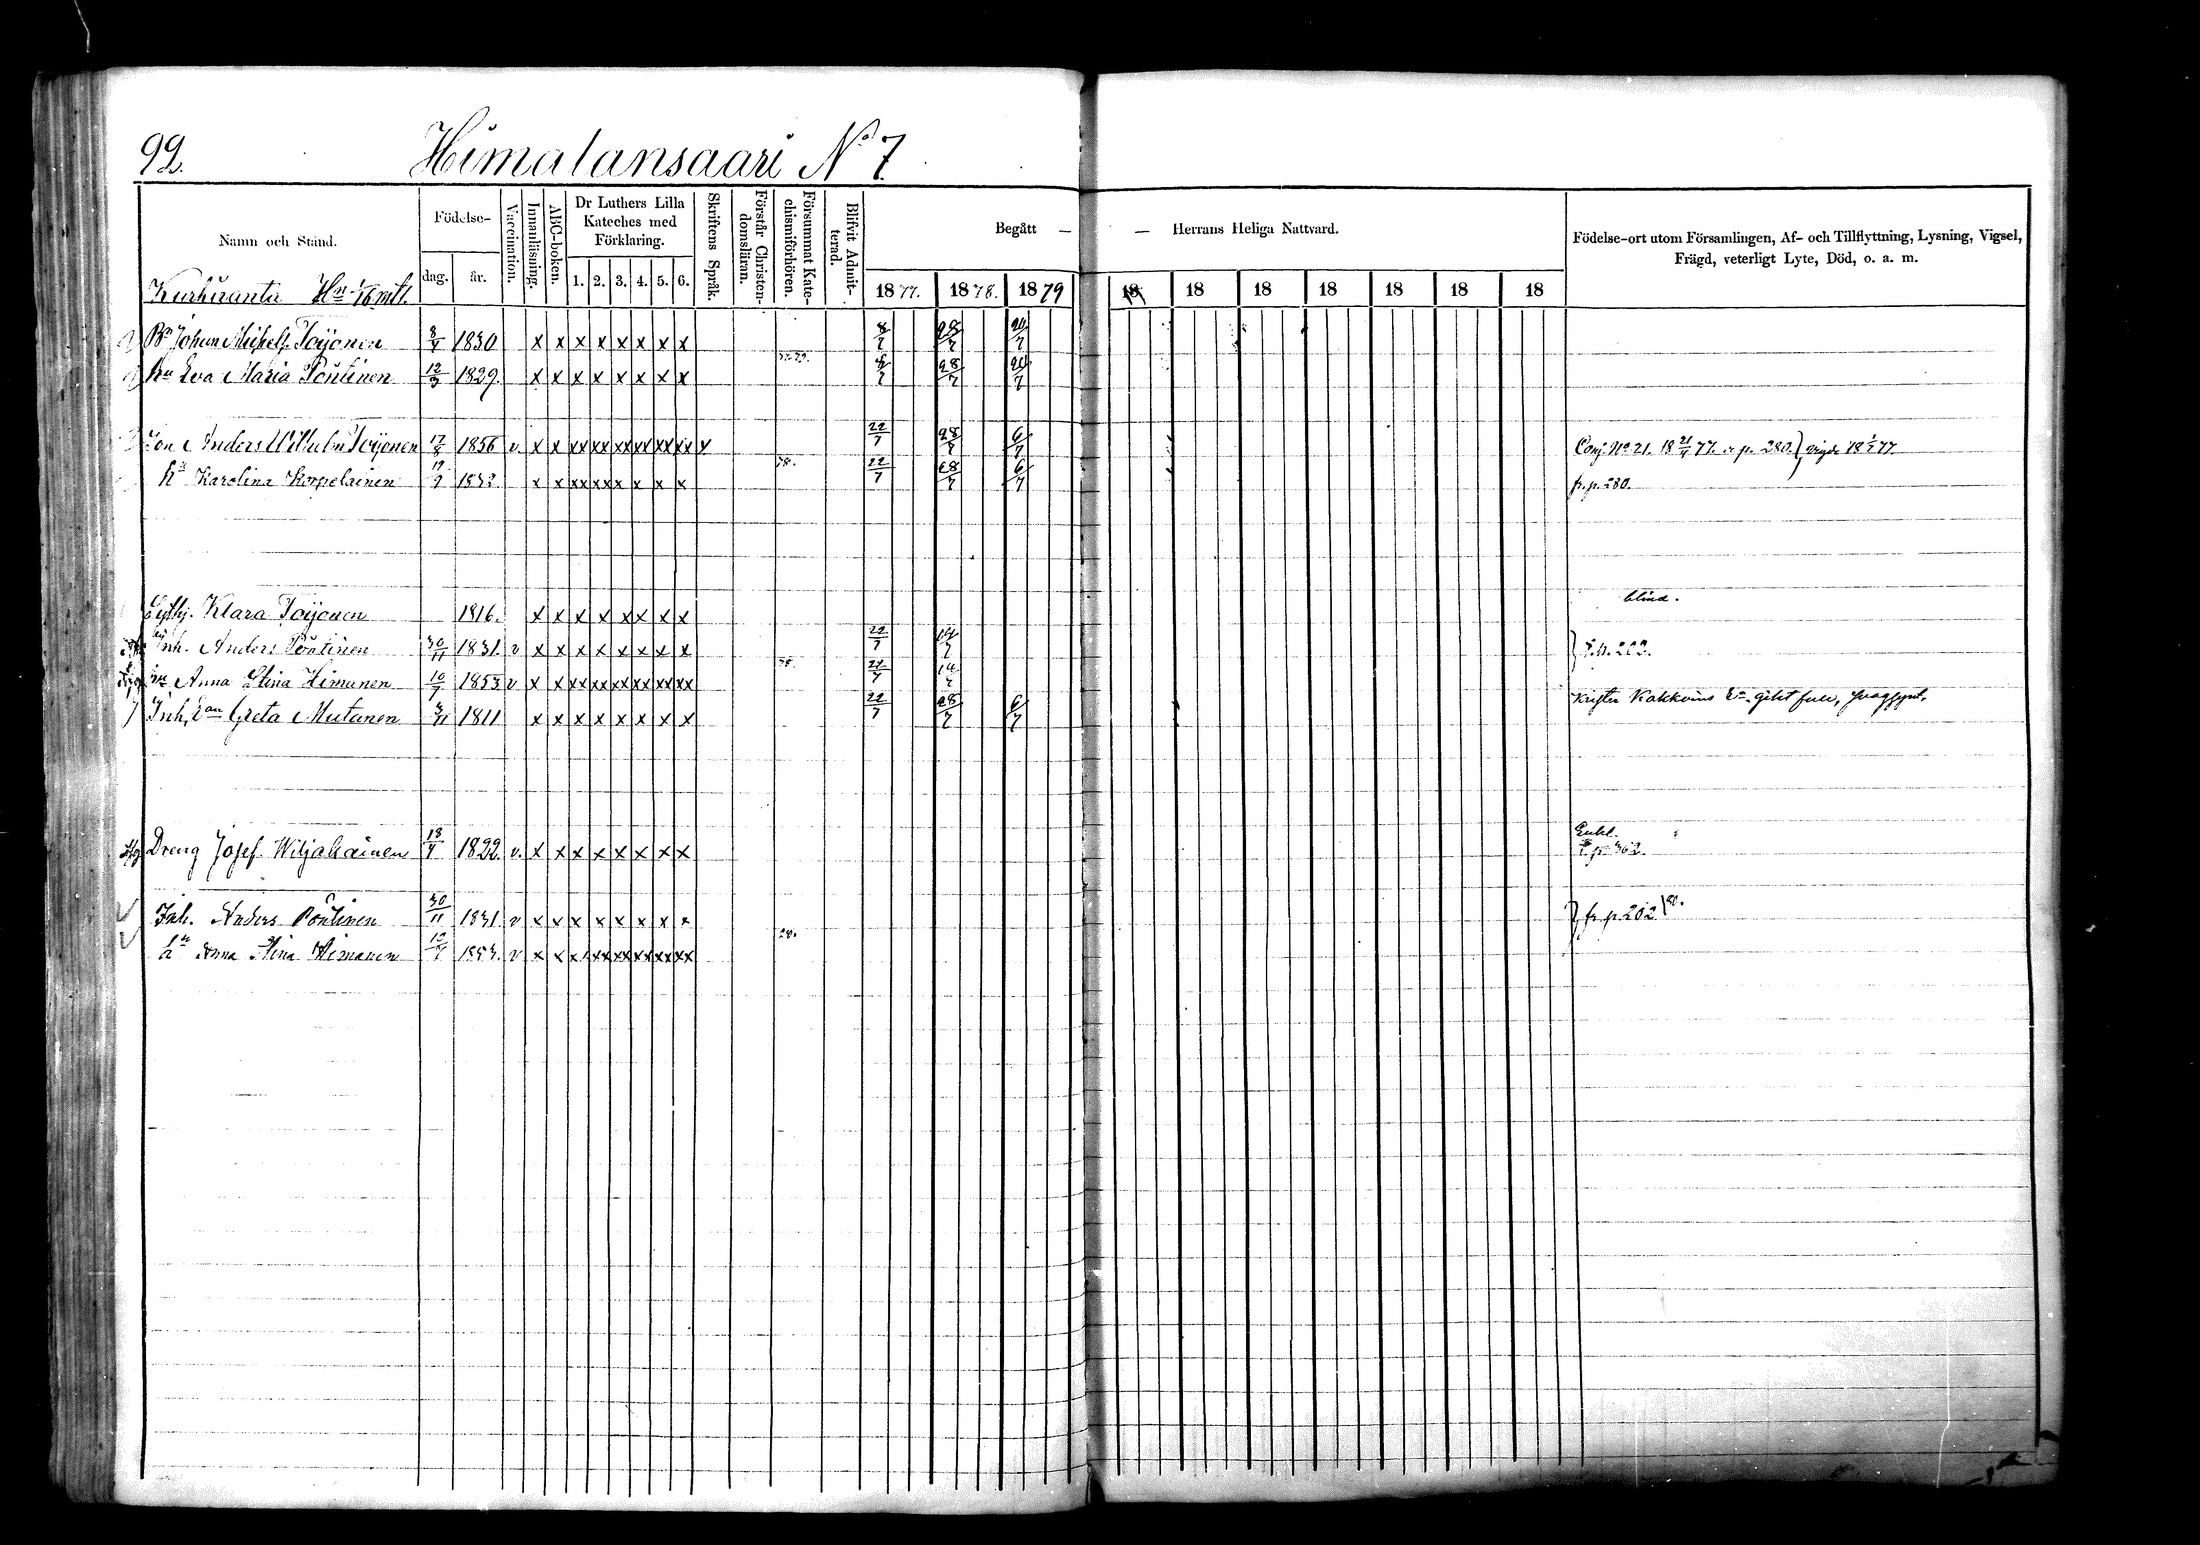 99.
Himalansaari No 7.
Namn och Stånd.
Födelse-
dag.
år.
Vaccination.
Innanläsning.
ABC-boken.
Dr Luthers Lilla
Kateches med
Förklaring.
1. 2. 3. 4. 5. 6.
Skriftens Språk.
Förstår Christen-
domsläran.
Försummat Kate-
chismiförhören.
Blifvit Admit-
terad.
Begått — — Herrans Heliga Nattvard.
1877. 1878. 1879 18 18 18 18 18 18 18
Födelse-ort utom Församlingen, Af- och Tillflyttning, Lysning, Vigsel,
Frägd, veterligt Lyte, Död, o. a. m.
Kurhiranta
Johan Toijonen 1830 x x x x x x x x 8/7 28/7 20/7
hu Eva Maria Pöntinen 12/3 1829. x x x x x x x x 28/7 20/7
Son Anders Wilhelm Toijonen 17/8 1856 v. x x xx xx xx xx xx xx 22/7 28/7 6/7 Conj. No 21. 18 21/4 77. p. 280.
Karolina Korpelainen 78. 22/7 28/7 6/7 fr. p. 280.
Klara Toijonen 1816. x x x x x x x x blind.
Inh. Anders Pöntinen 30/11 1831. v x x x x x x x x 22/7 14/7 202.
Anna Stina Himanen 10/7 1853 v x x xx xx xx xx xx xx 14/7
Inh. Greta Mutanen 1811 x x x x x x x x 22/7 28/7 6/7
Dreng Josef Wiljakainen 1822. v. x x x x x x x x
Inh. Anders Pöntinen 30/11 1831. v x x x x x x x x fr. p. 202
Anna Stina Himanen 1853. v